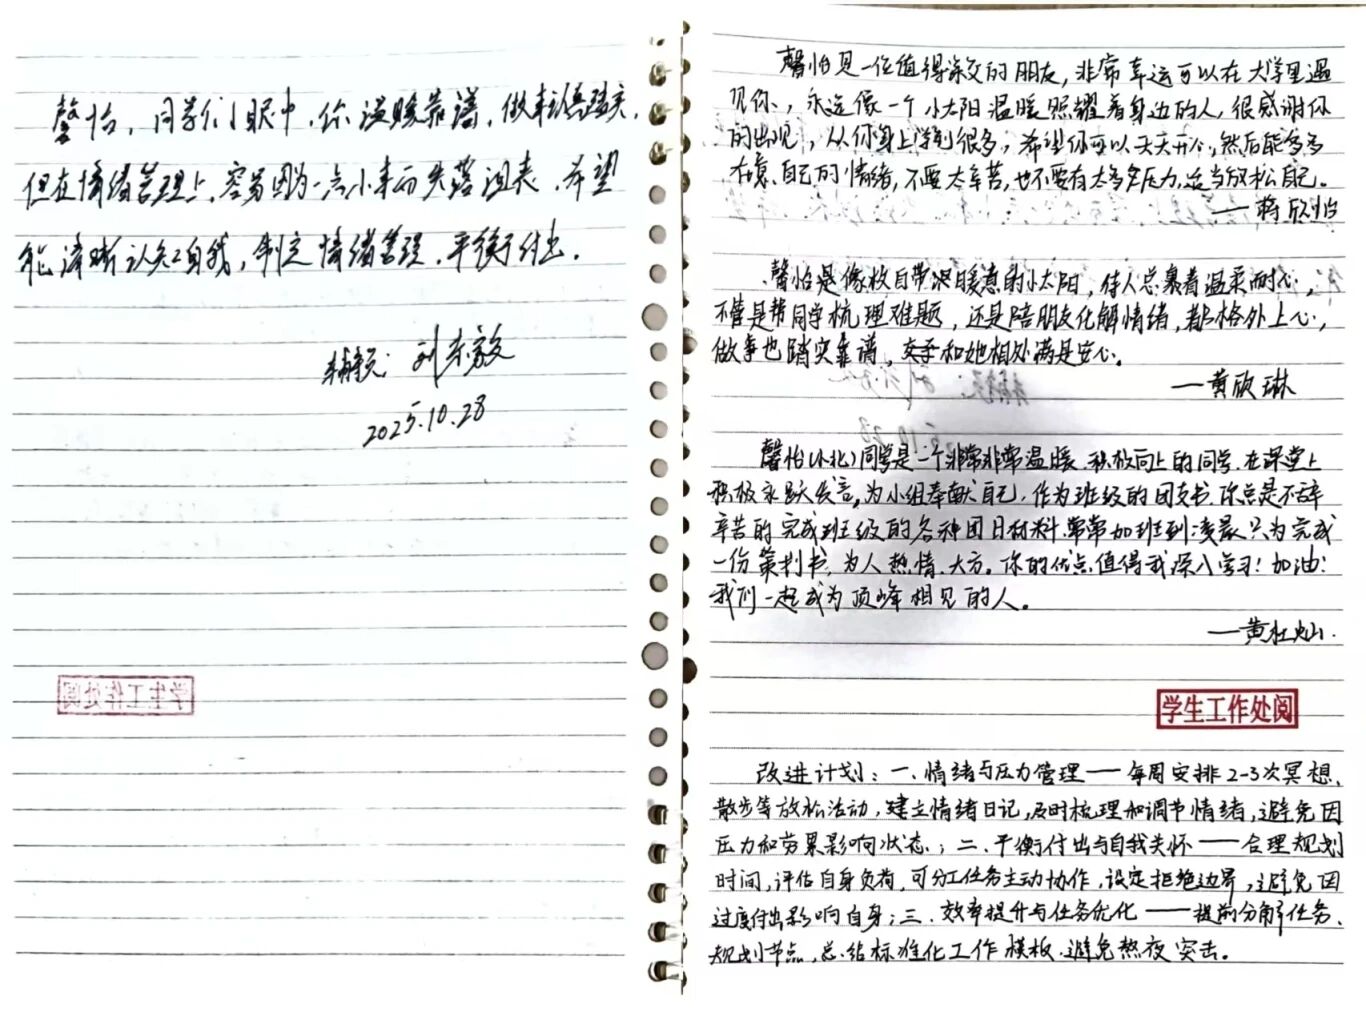 馨怡，同学们眼中，你温暖靠谱，做事认真踏实，
但在情绪管理上，容易因为一点小事而失落沮丧，希望
能清晰认知自我，制定情绪管理，平衡付出。
辅导员：刘志毅
2025.10.28
学生工作处阅
馨怡是一位值得深交的朋友，非常幸运可以在大学里遇
见你，永远像一个小太阳温暖照耀着身边的人，很感谢你
的出现，从你身上学到很多，希望你可以天天开心，然后能多多
在意自己的情绪，不要太辛苦，也不要有太多压力，适当放松自己。
——蒋欣怡
馨怡是像枚自带温暖意的小太阳，待人总裹着温柔耐心，
不管是帮同学梳理难题，还是陪朋友化解情绪，都格外上心，
做事也踏实靠谱，交手和她相处满是安心。
——黄欣琳
馨怡（小北）同学是一个非常非常温暖、积极向上的同学，在课堂上
积极永跃发言，为小组奉献自己，作为班级的团支书，你总是不辞
辛苦的完成班级的各种团日材料，常常加班到凌晨只为完成
一份策划书，为人热情、大方。你的优点值得我深入学习！加油！
我们一起成为顶峰相见的人。
——黄杜灿.
学生工作处阅
改进计划：一、情绪与压力管理——每周安排2-3次冥想、
散步等放松活动，建立情绪日记，及时梳理和调节情绪，避免因
压力和劳累影响状态；二、平衡付出与自我关怀——合理规划
时间，评估自身负荷，可分工任务主动协作，设定拒绝边界，避免因
过度付出影响自身；三、效率提升与任务优化——提前分解任务、
规划节点，总结标准化工作模板，避免熬夜突击。